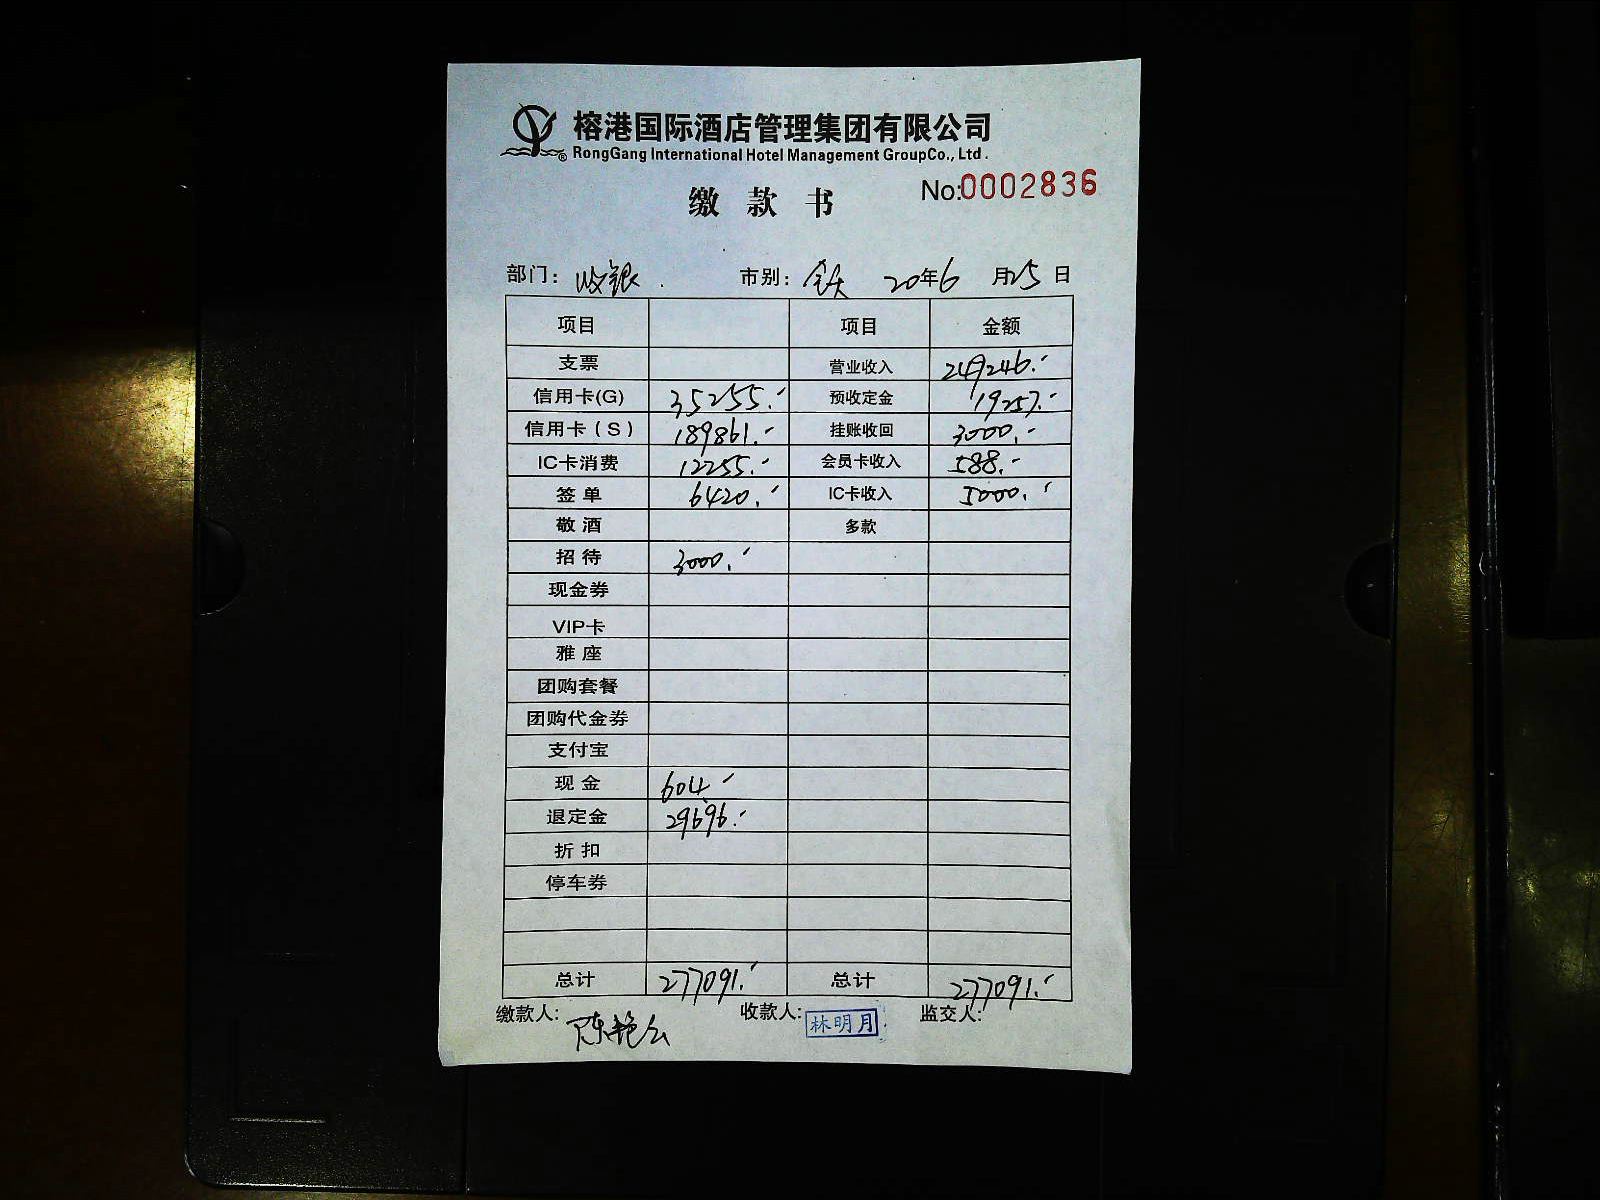 榕港国际酒店管理集团有限公司
RongGang International Hotel Management GroupCo., Ltd.
缴 款 书 No:0002836
部门: 收银 市别: 全天 20年6月25日
项目 项目 金额
支票 营业收入 249246.-
信用卡(G) 35255.- 预收定金 19257.-
信用卡(S) 189861.- 挂账收回 3000.-
IC卡消费 12255.- 会员卡收入 588.-
签单 6420.- IC卡收入 5000.-
敬酒 多款
招待 3000.-
现金券
VIP卡
雅座
团购套餐
团购代金券
支付宝
现金 604.-
退定金 29696.-
折扣
停车券
总计 277091.- 总计 277091.-
缴款人: 陈艳云 收款人: 林明月 监交人: